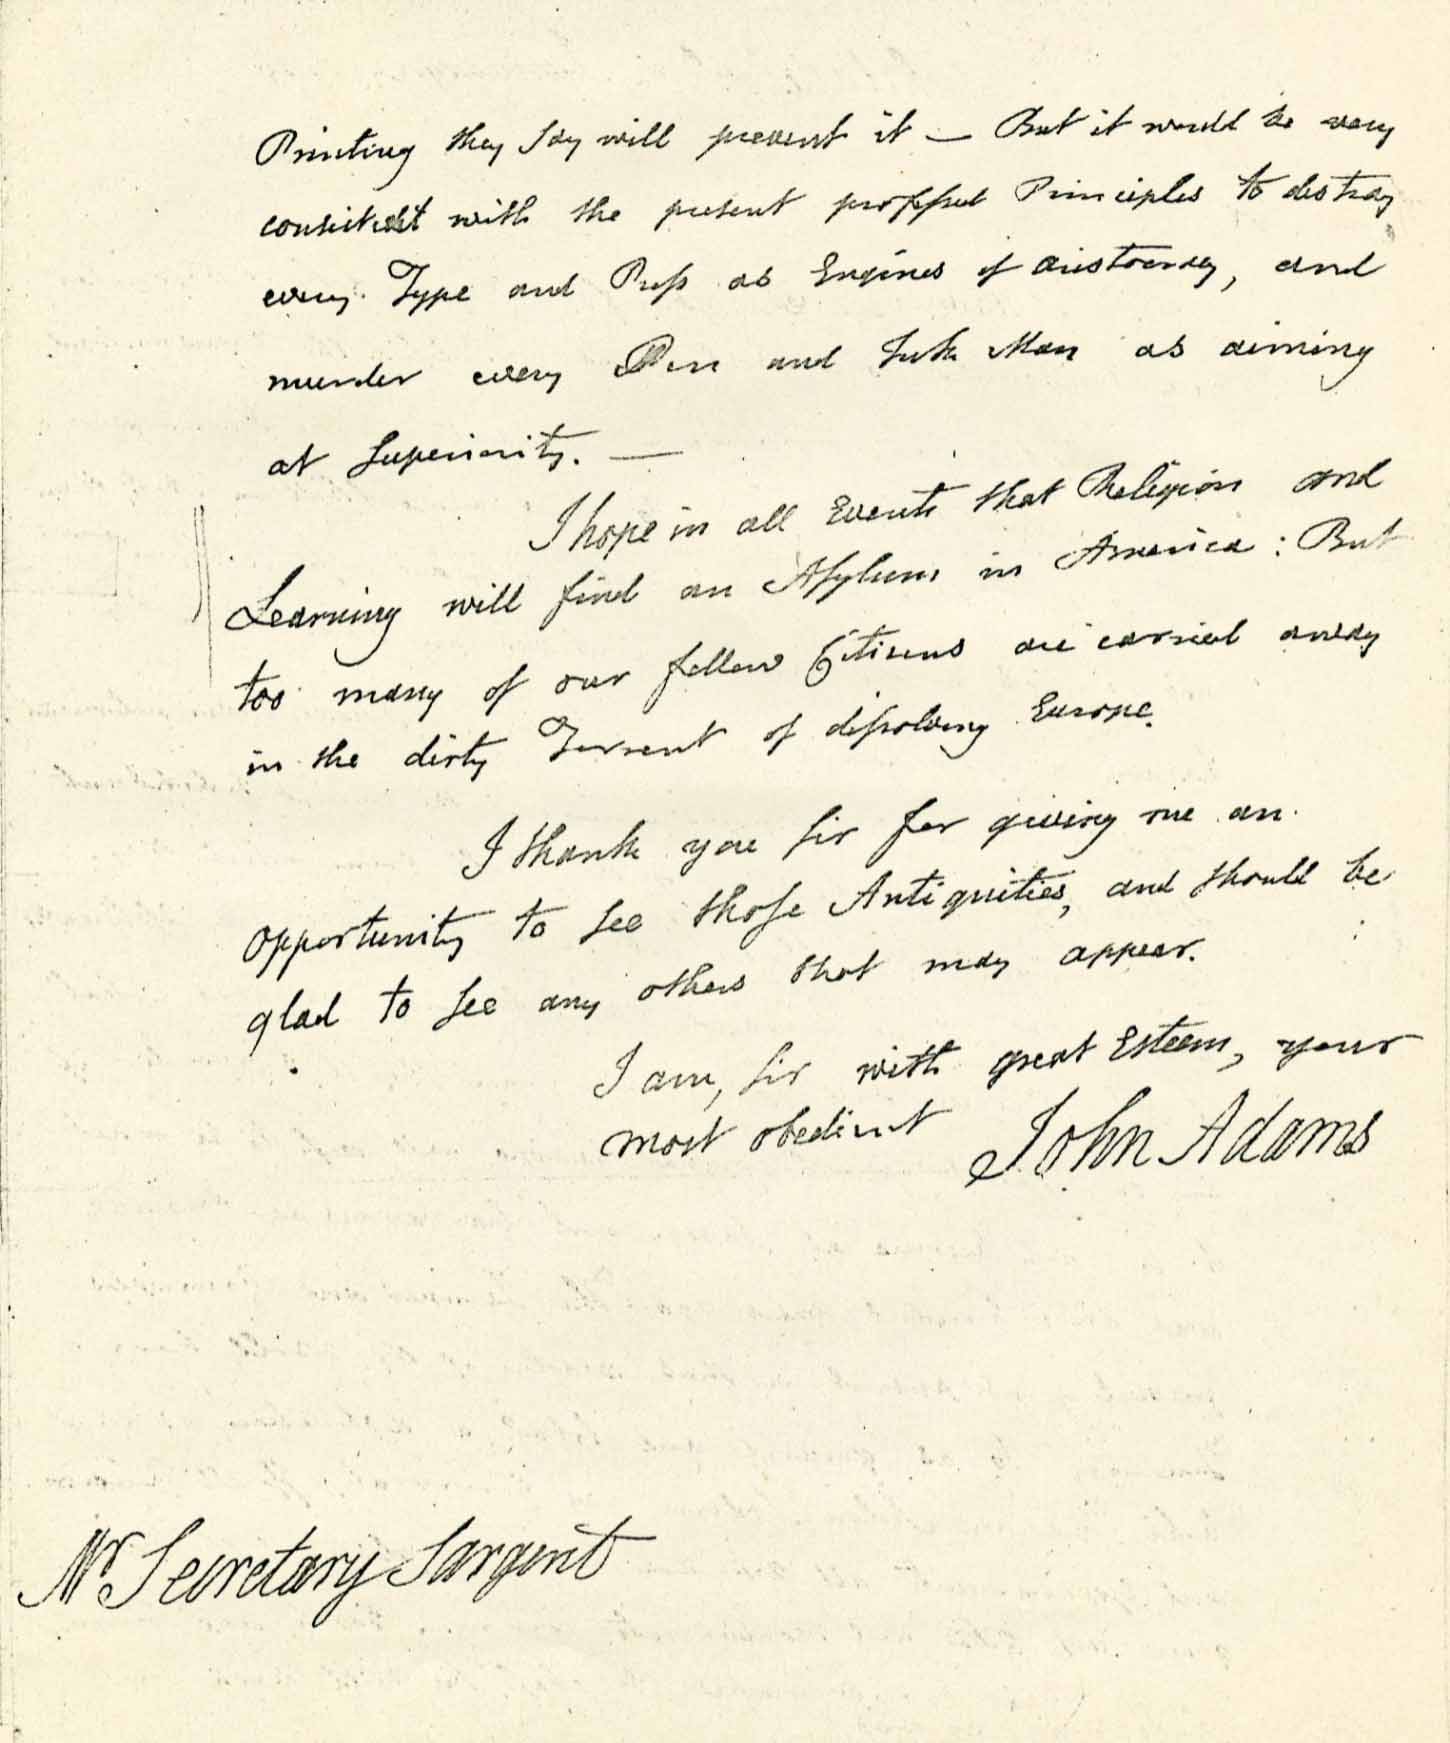 Printing they Say will prevent it — But it would be very
consistent with the present professed Principles to destroy
every Type and Press as Engines of aristocracy, and
murder every Pen and Ink Man as aiming
at Superiority. —
I hope in all Events that Religion and
Learning will find an Asylum in America : But
too many of our fellow Citizens are carried away
in the dirty Torrent of dissolving Europe.
I thank you Sir for giving me an
opportunity to See those Antiquities, and should be
glad to See any others that may appear.
I am, Sir with great Esteem, your
most obedient John Adams
Mr Secretary Sargent